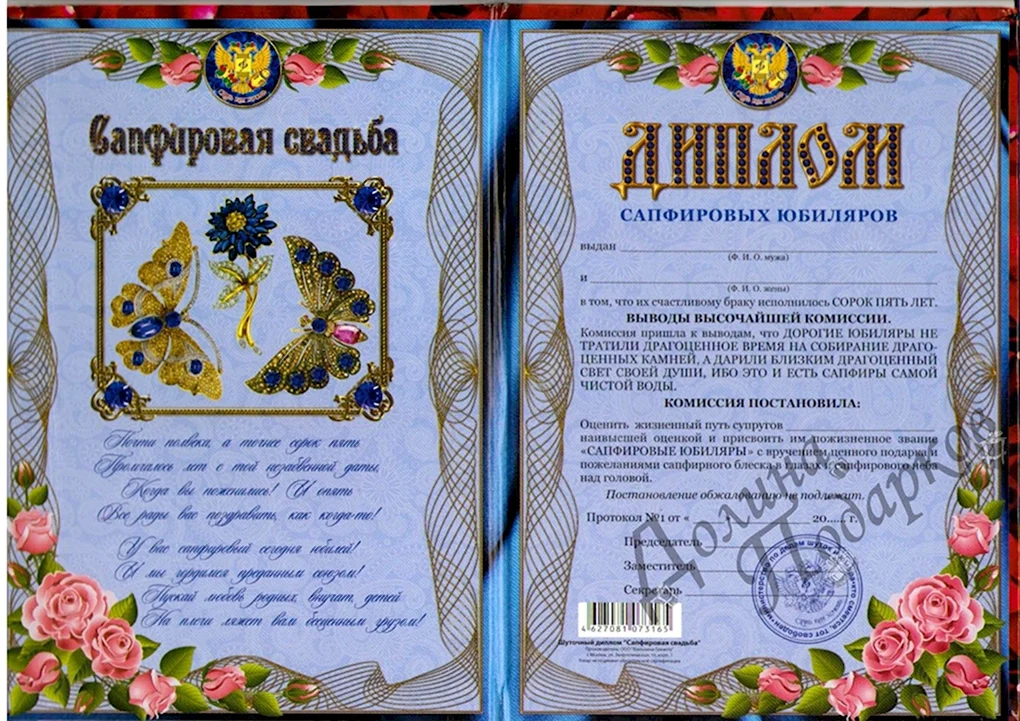 Сапфировая свадьба
Почти полвека, а точнее сорок пять
Промчалось лет с той незабвенной даты,
Когда вы поженились! И опять
Все рады вас поздравить, как когда-то!
У вас сапфировый сегодня юбилей!
И мы гордимся преданным союзом!
Пускай любовь родных, внучат, детей
На плечи ляжет вам бесценным грузом!
ДИПЛОМ
САПФИРОВЫХ ЮБИЛЯРОВ
выдан
(Ф. И. О. мужа)
и
(Ф. И. О. жены)
в том, что их счастливому браку исполнилось СОРОК ПЯТЬ ЛЕТ.
ВЫВОДЫ ВЫСОЧАЙШЕЙ КОМИССИИ.
Комиссия пришла к выводам, что ДОРОГИЕ ЮБИЛЯРЫ НЕ
ТРАТИЛИ ДРАГОЦЕННОЕ ВРЕМЯ НА СОБИРАНИЕ ДРАГО-
ЦЕННЫХ КАМНЕЙ, А ДАРИЛИ БЛИЗКИМ ДРАГОЦЕННЫЙ
СВЕТ СВОЕЙ ДУШИ, ИБО ЭТО И ЕСТЬ САПФИРЫ САМОЙ
ЧИСТОЙ ВОДЫ.
КОМИССИЯ ПОСТАНОВИЛА:
Оценить жизненный путь супругов
наивысшей оценкой и присвоить им пожизненное звание
«САПФИРОВЫЕ ЮБИЛЯРЫ» с вручением ценного подарка и
пожеланиями сапфирного блеска в глазах и сапфирового неба
над головой.
Постановление обжалованию не подлежит.
Протокол №1 от « 20..... г.
Председатель
Заместитель
Секретарь
Долина Подарков
4 627081 073165
Шуточный диплом "Сапфировая свадьба"